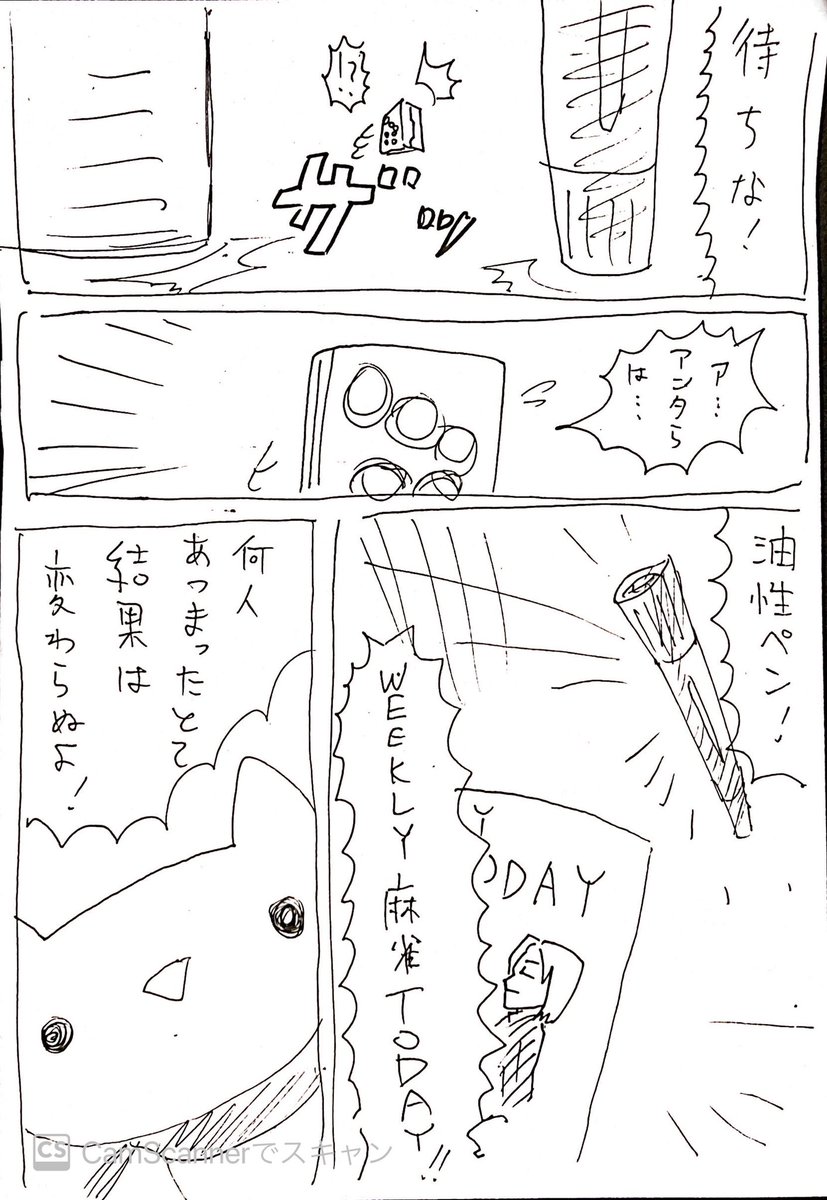 待ちな！
！？
ザッ
ア…
アンタら
は…
油性ペン！
WEEKLY麻雀TODAY!!
Y
ODAY
何人
あつまったとて
結果は
変わらぬよ！
CS CamScannerでスキャン